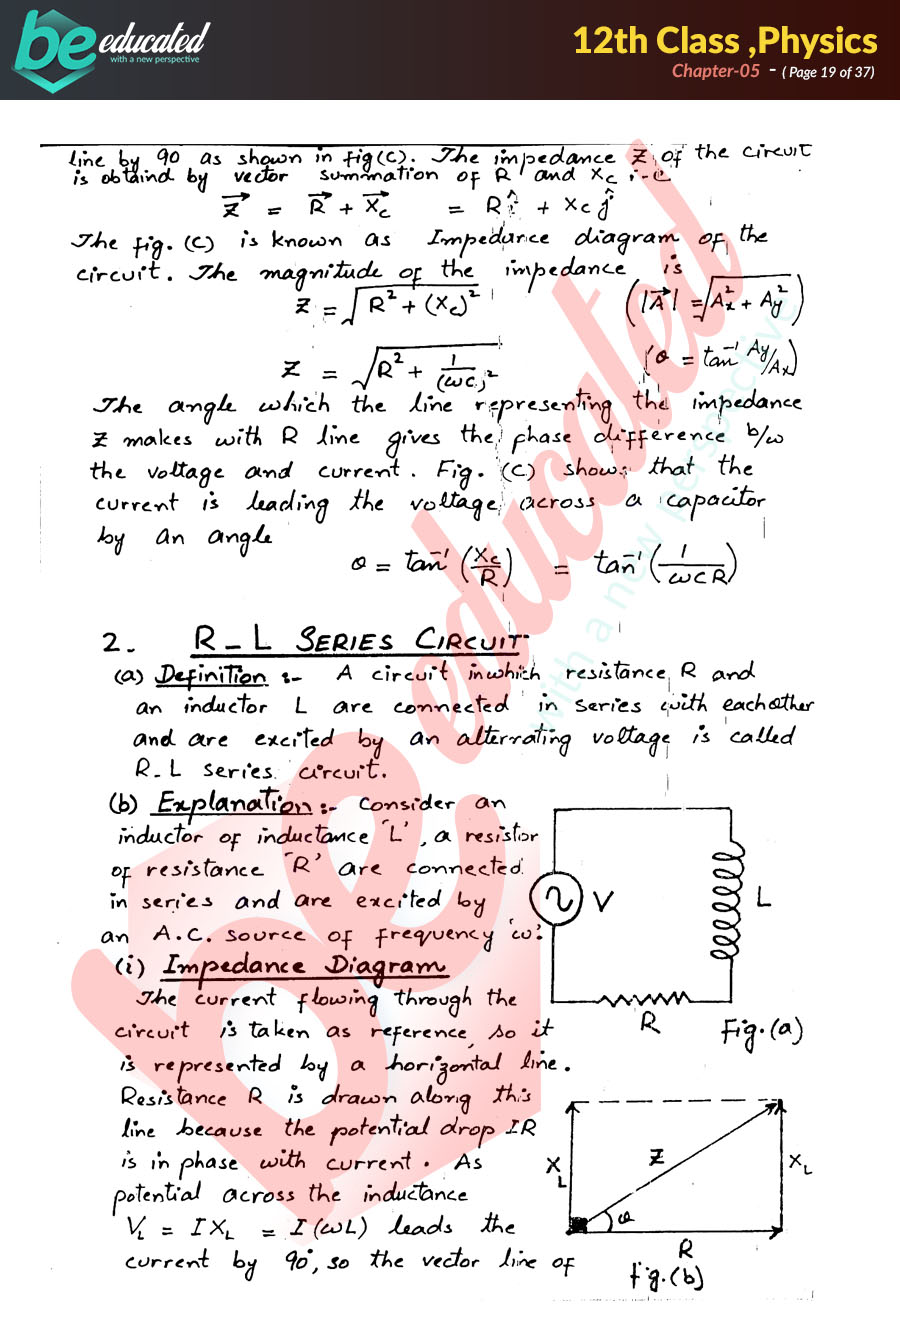 be educated
with a new perspective
12th Class ,Physics
Chapter-05 - ( Page 19 of 37)
line by 90 as shown in fig(c). The impedance Z of the circuit
is obtaind by vector summation of R and Xc i-e
Z⃗ = R⃗ + X⃗c = R î + Xc ĵ
The fig. (c) is known as Impedance diagram of the
circuit. The magnitude of the impedance is
Z = √(R² + (Xc)²) (|A⃗| = √(Ax² + Ay²))
Z = √(R² + 1/(ωC)²) (θ = tan⁻¹ Ay/Ax)
The angle which the line representing the impedance
Z makes with R line gives the phase difference b/w
the voltage and current. Fig. (c) shows that the
current is leading the voltage across a capacitor
by an angle
θ = tan⁻¹ (Xc/R) = tan⁻¹ (1/ωCR)
2. R-L SERIES CIRCUIT
(a) Definition :- A circuit in which resistance R and
an inductor L are connected in series with eachother
and are excited by an alternating voltage is called
R-L series circuit.
(b) Explanation:- Consider an
inductor of inductance 'L', a resistor
of resistance 'R' are connected
in series and are excited by
an A.C. source of frequency 'ω'.
V
L
R
Fig.(a)
(i) Impedance Diagram
The current flowing through the
circuit is taken as reference, so it
is represented by a horizontal line.
Resistance R is drawn along this
line because the potential drop IR
is in phase with current. As
potential across the inductance
V_L = I X_L = I (ωL) leads the
current by 90°, so the vector line of
X_L
Z
X_L
θ
R
fig.(b)
be educated
with a new perspective